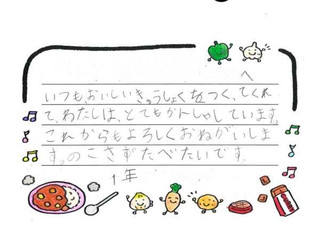 へ
いつも、おいしいきゅうしょくをつくってくれ
て、わたしは、とてもかんしゃしています。
これからもよろしくおねがいしま
す。のこさずたべたいです。
1年